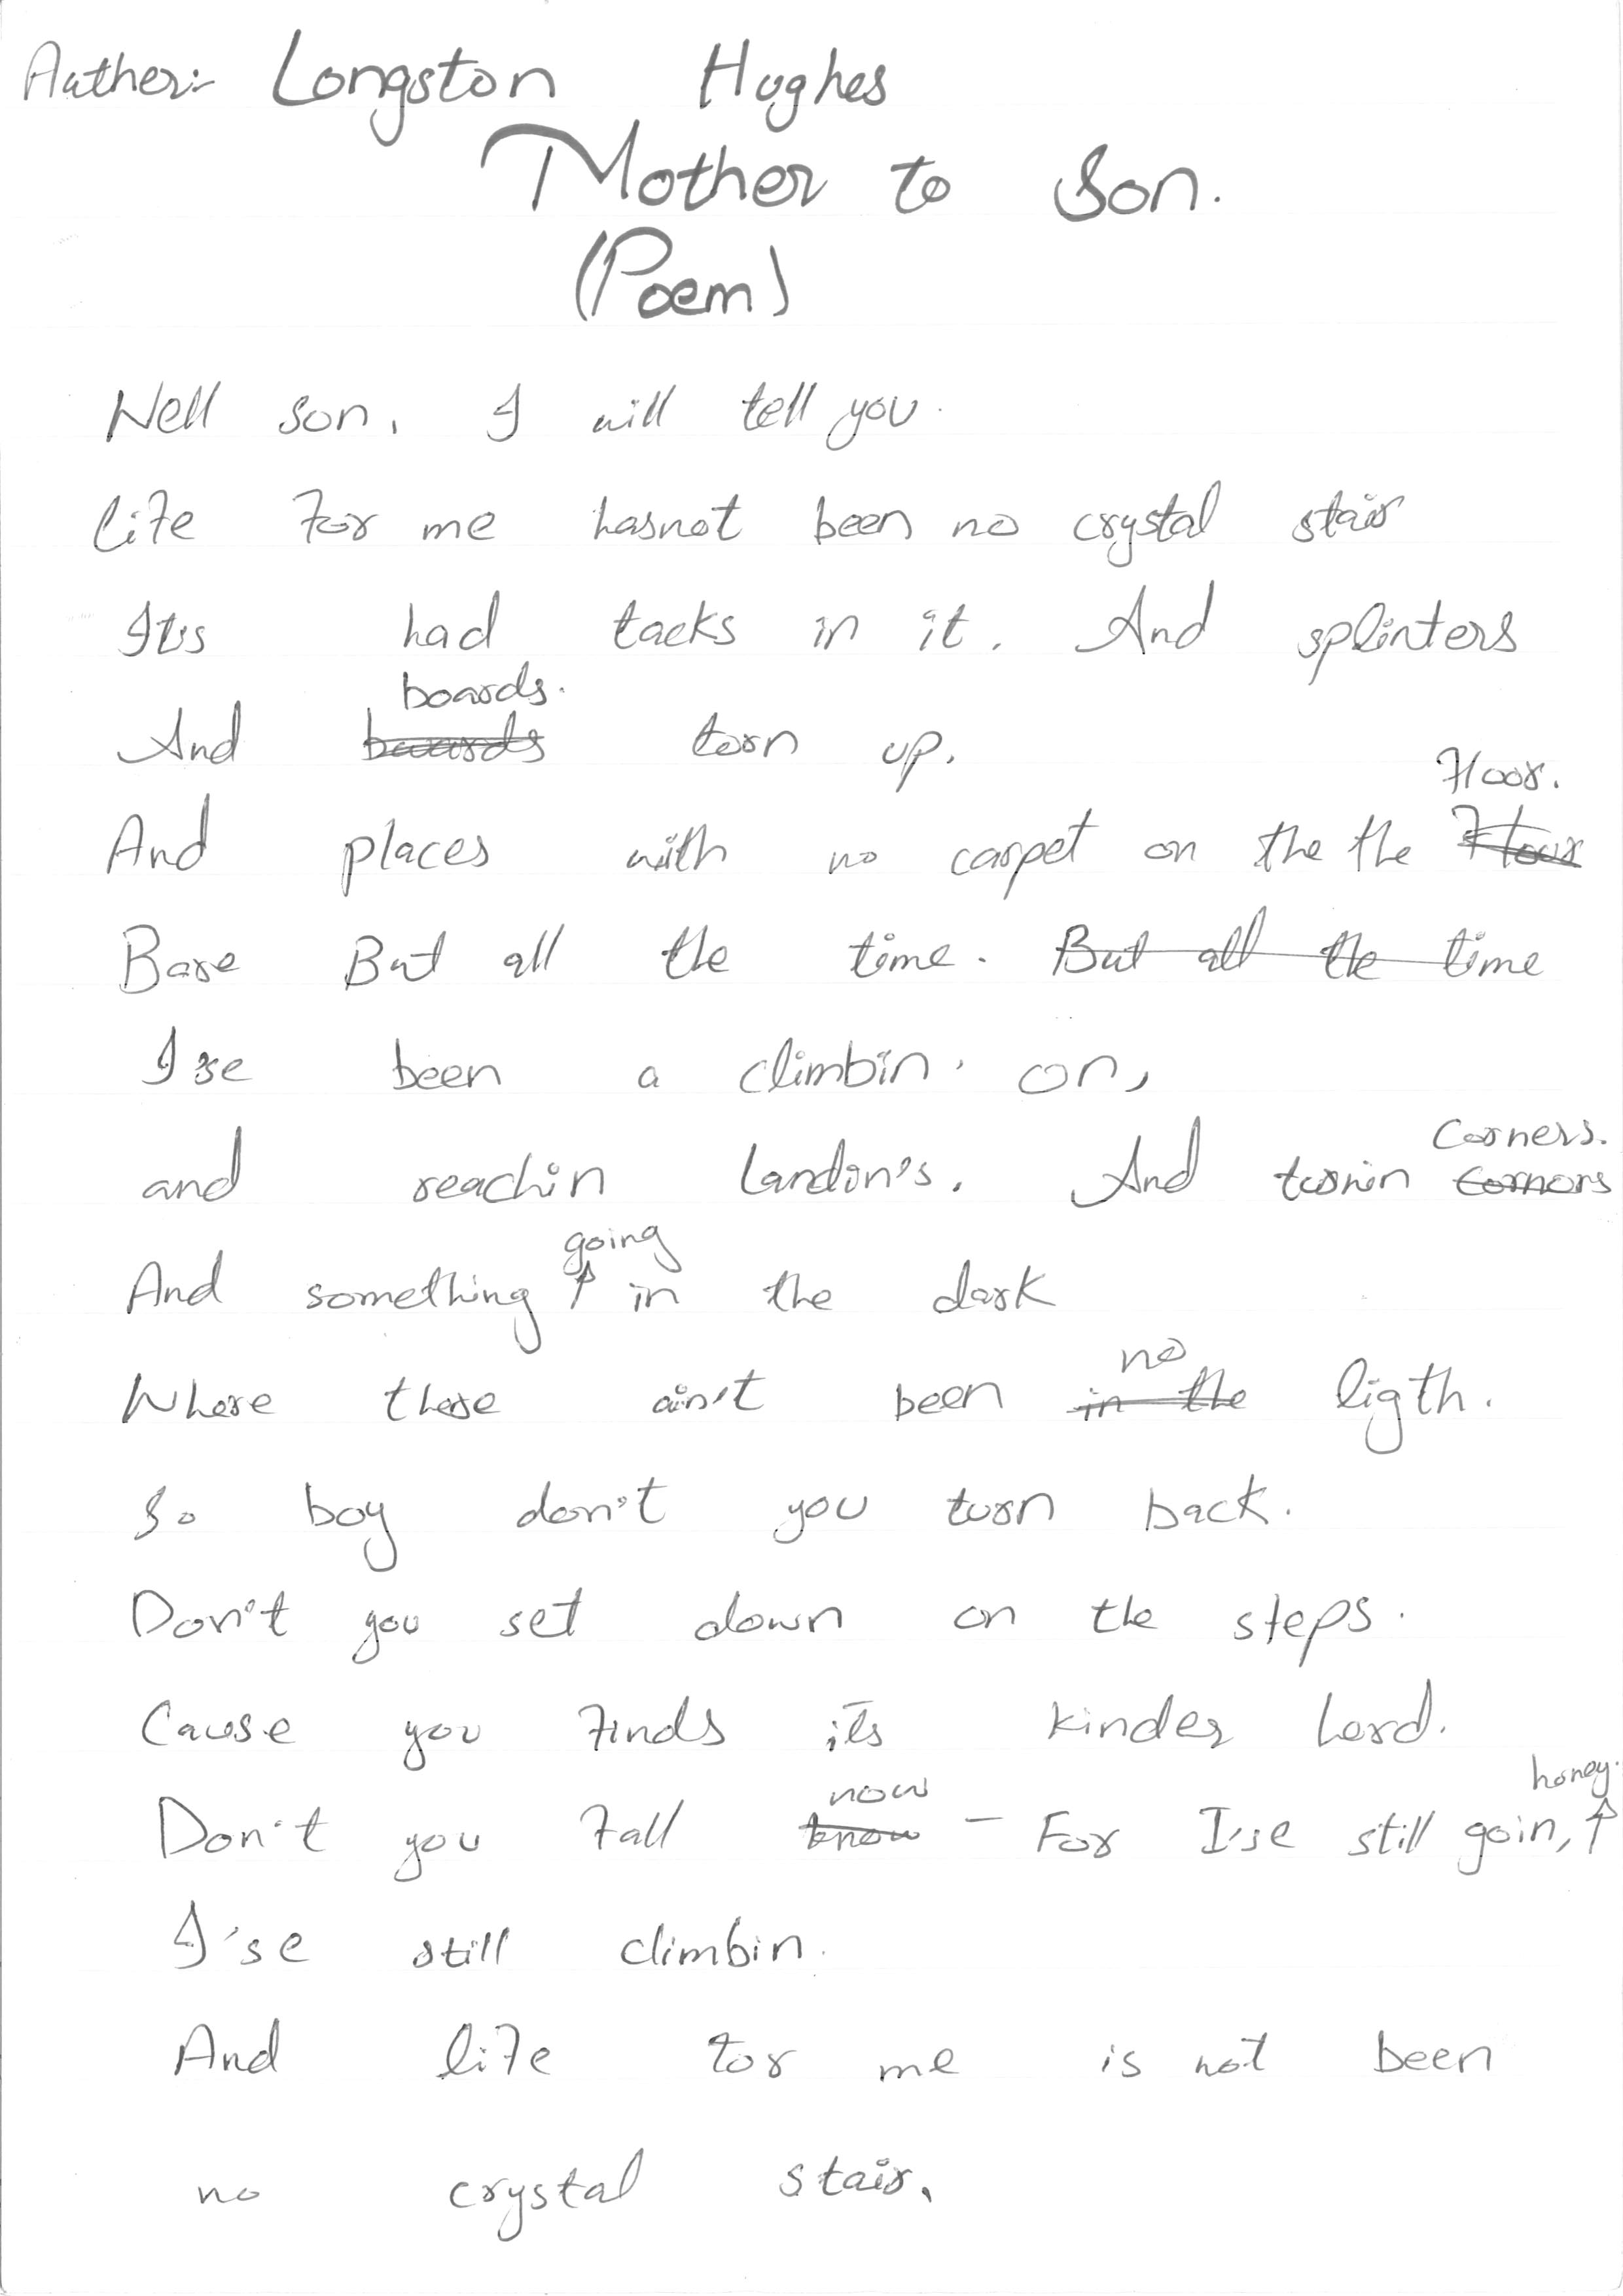 Auther:- Longston Hughes
Mother to Son.
(Poem)
Well son, I will tell you.
life For me hasnot been no crystal stair
Its had tacks in it. And splinters
boards.
And boards torn up.
Floor.
And places with no carpet on the the Flour
Bare But all the time. But all the time
I se been a climbin. on,
Corners.
and reachin landin's. And turnin Cornors
going
And something ↑ in the dark
no
Where there ain't been in the ligth.
So boy don't you turn back.
Don't you set down on the steps.
Cause you Finds its kinder herd.
now honey.
Don't you Fall know - For I'se still goin, ↑
I'se still climbin.
And life for me is not been
no crystal stair.